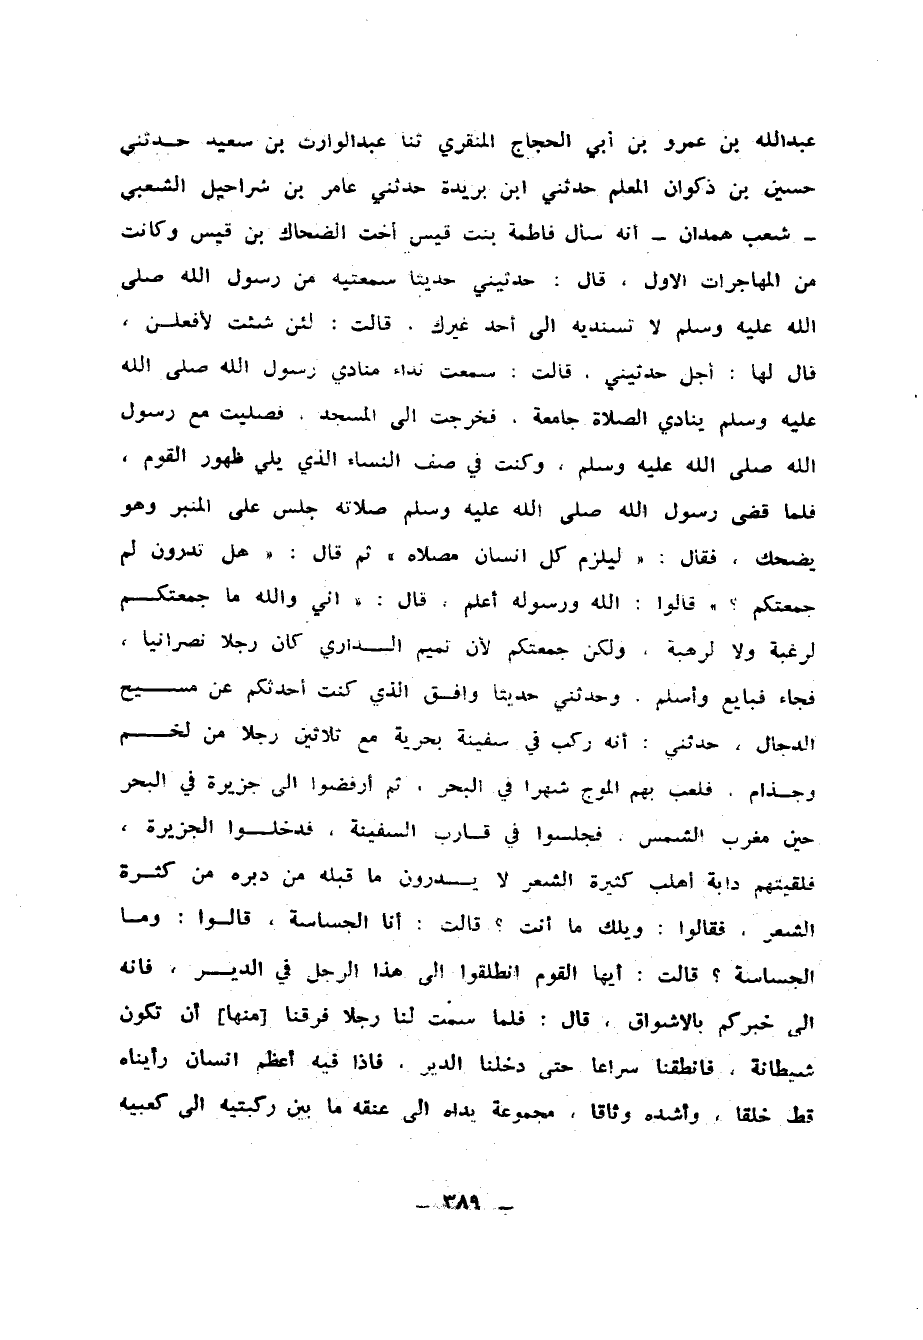 عبدالله بن عمرو بن أبي الحجاج المنقري ثنا عبدالوارث بن سعيد حـدثني
حسين بن ذكوان المعلم حدثني ابن بريدة حدثني عامر بن شراحيل الشعبي
ـ شعب همدان ـ أنه سأل فاطمة بنت قيس أخت الضحاك بن قيس وكانت
من المهاجرات الاول ، قال : حدثيني حديثا سمعتيه من رسول الله صلى
الله عليه وسلم لا تسنديه الى أحد غيرك . قالت : لئن شئت لأفعلـن ،
قال لها : أجل حدثيني . قالت : سمعت نداء منادي رسول الله صلى الله
عليه وسلم ينادي الصلاة جامعة . فخرجت الى المسجد . فصليت مع رسول
الله صلى الله عليه وسلم ، وكنت في صف النساء الذي يلي ظهور القوم ،
فلما قضى رسول الله صلى الله عليه وسلم صلاته جلس على المنبر وهو
يضحك ، فقال : « ليلزم كل انسان مصلاه » ثم قال : « هل تدرون لم
جمعتكم ؟ » قالوا : الله ورسوله أعلم ، قال : « اني والله ما جمعتكـــم
لرغبة ولا لرهبة ، ولكن جمعتكم لأن تميم الـــداري كان رجلا نصرانيا ،
فجاء فبايع وأسلم . وحدثني حديثا وافـق الذي كنت أحدثكم عن مســـيح
الدجال ، حدثني : أنه ركب في سفينة بحرية مع ثلاثين رجلا من لخـــم
وجـذام . فلعب بهم الموج شهرا في البحر ، ثم أرفضوا الى جزيرة في البحر
حين مغرب الشمس . فجلسوا في قـارب السفينة ، فدخلـوا الجزيرة ،
فلقيتهم دابة أهلب كثيرة الشعر لا يـــدرون ما قبله من دبره من كثـرة
الشعر ، فقالوا : ويلك ما أنت ؟ قالت : أنا الجساسة ، قالـوا : ومـا
الجساسة ؟ قالت : أيها القوم انطلقوا الى هذا الرجل في الديـر ، فانه
الى خبركم بالاشواق ، قال : فلما سمت لنا رجلا فرقنا [منها] أن تكون
شيطانة ، فانطقنا سراعا حتى دخلنا الدير . فاذا فيه أعظم انسان رأيناه
قط خلقا ، وأشده وثاقا ، مجموعة يداه الى عنقه ما بين ركبتيه الى كعبيه
ـ ٣٨٩ ـ